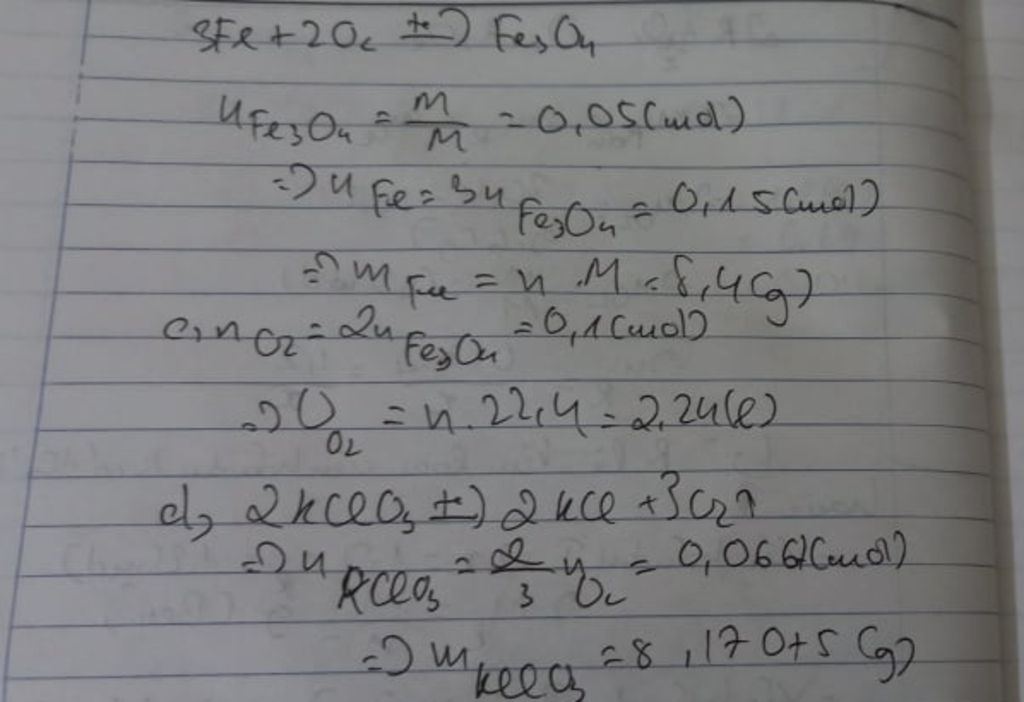 3Fe + 2O₂ →(t°) Fe₃O₄
n Fe₃O₄ = m/M = 0,05 (mol)
=> n Fe = 3n Fe₃O₄ = 0,15 (mol)
=> m Fe = n . M = 8,4 (g)
c, n O₂ = 2n Fe₃O₄ = 0,1 (mol)
=> V O₂ = n . 22,4 = 2,24 (l)
d, 2KClO₃ →(t°) 2KCl + 3O₂↑
=> n KClO₃ = 2/3 n O₂ = 0,0667 (mol)
=> m KClO₃ = 8,17075 (g)